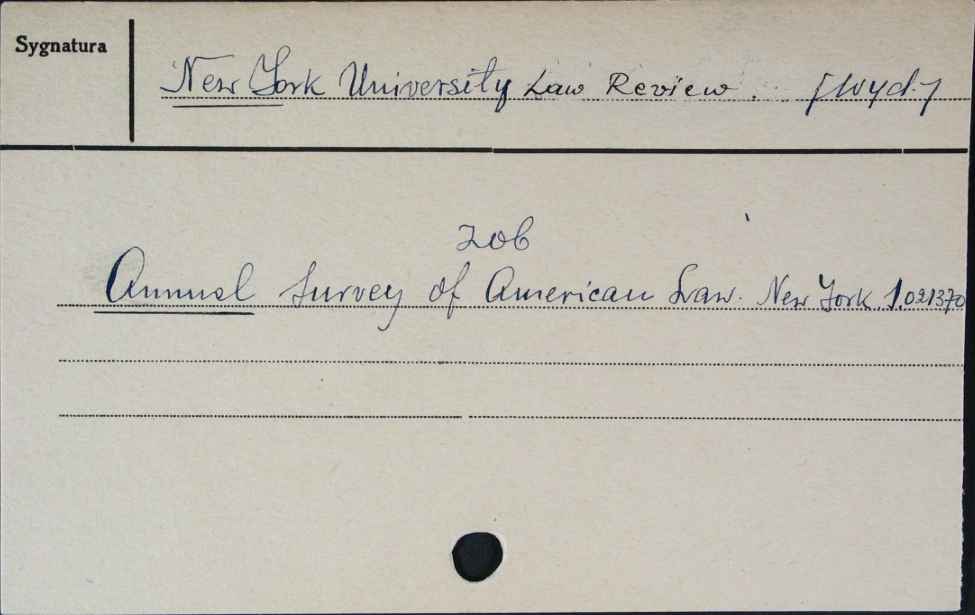 Sygnatura
New York University Law Review. [Wyd.]
zob
Annual Survey of American Law. New York. 1.021370